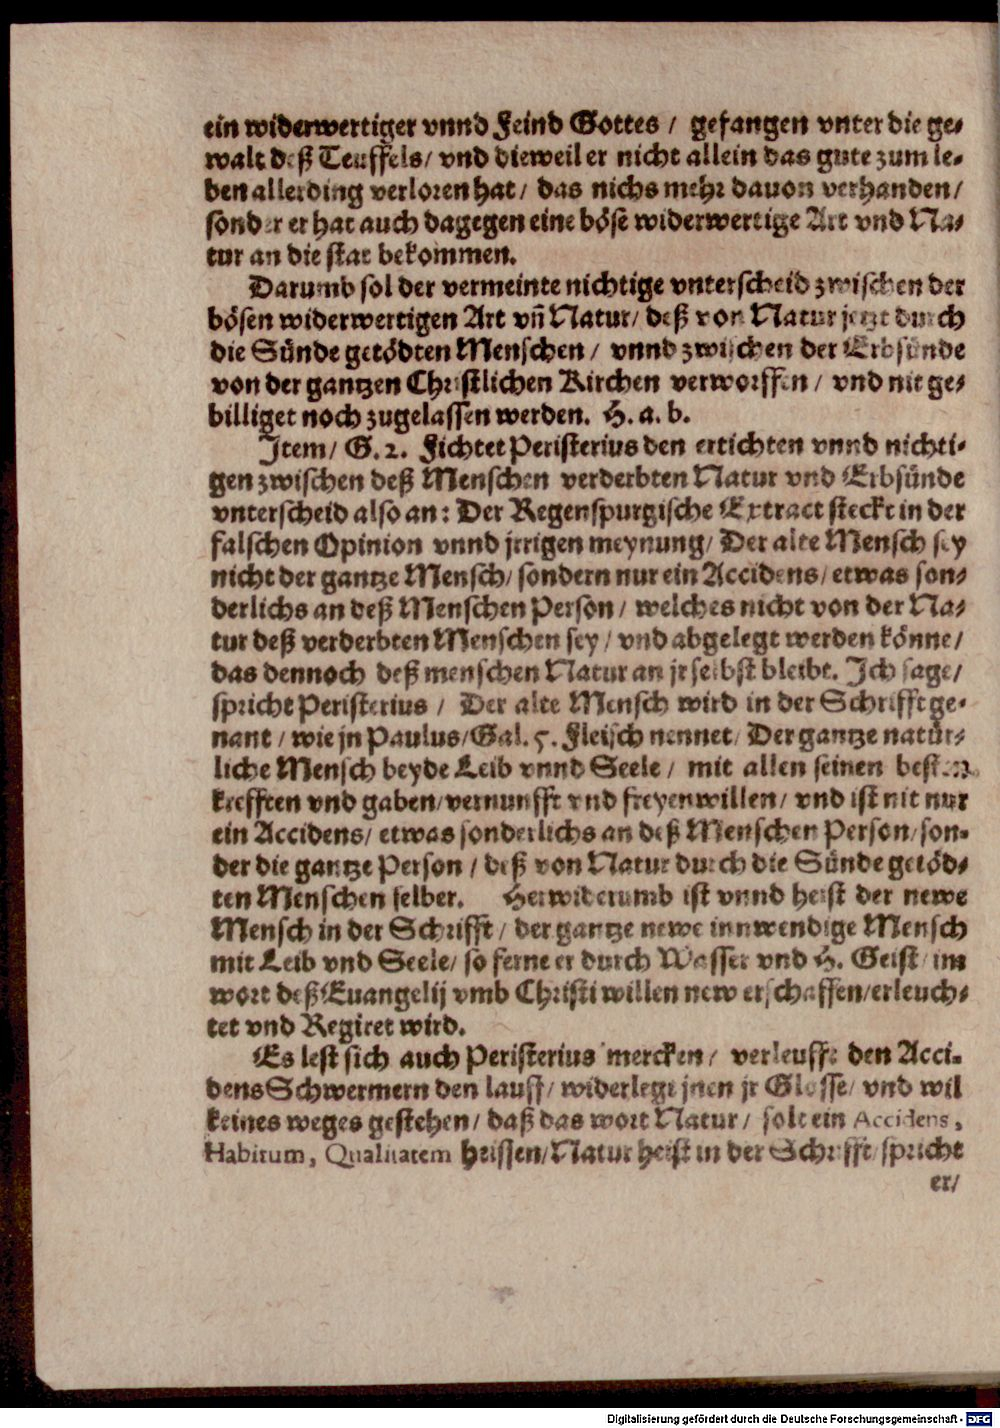 ein widerwertiger vnnd Feind Gottes / gefangen vnter die ge-
walt deß Teuffels / vnd dieweil er nicht allein das gute zum le-
ben allerding verloren hat / das nichs mehr dauon verhanden /
sonder er hat auch dagegen eine böse widerwertige Art vnd Na-
tur an die stat bekommen.
Darumb sol der vermeinte nichtige vnterscheid zwischen der
bösen widerwertigen Art vn̄ Natur / deß von Natur jetzt durch
die Sünde getödten Menschen / vnnd zwischen der Erbsünde
von der gantzen Christlichen Kirchen verworffen / vnd nit ge-
billiget noch zugelassen werden. H. a. b.
Item / G. 2. Fichtet Peristerius den ertichten vnnd nichti-
gen zwischen deß Menschen verderbten Natur vnd Erbsünde
vnterscheid also an: Der Regenspurgische Extract steckt in der
falschen Opinion vnnd jrrigen meynung / Der alte Mensch sey
nicht der gantze Mensch / sondern nur ein Accidens / etwas son-
derlichs an deß Menschen Person / welches nicht von der Na-
tur deß verderbten Menschen sey / vnd abgelegt werden könne /
das dennoch deß menschen Natur an jr selbst bleibt. Ich sage /
spricht Peristerius / Der alte Mensch wird in der Schrifft ge-
nant / wie jn Paulus / Gal. 5. Fleisch nennet / Der gantze natür-
liche Mensch beyde Leib vnnd Seele / mit allen seinen besten
krefften vnd gaben / vernunfft vnd freyen willen / vnd ist nit nur
ein Accidens / etwas sonderlichs an deß Menschen Person / son-
der die gantze Person / deß von Natur durch die Sünde getöd-
ten Menschen selber. Herwiderumb ist vnnd heist der newe
Mensch in der Schrifft / der gantze newe innwendige Mensch
mit Leib vnd Seele / so ferne er durch Wasser vnd H. Geist / im
wort deß Euangelij vmb Christi willen new erschaffen / erleuch-
tet vnd Regiret wird.
Es lest sich auch Peristerius mercken / verleufft den Acci-
dens Schwermern den lauff / widerlegt jnen jr Glosse / vnd wil
keines weges gestehen / daß das wort Natur / solt ein Accidens,
Habitum, Qualitatem heissen / Natur heist in der Schrifft / spricht
er /
Digitalisierung gefördert durch die Deutsche Forschungsgemeinschaft - DFG